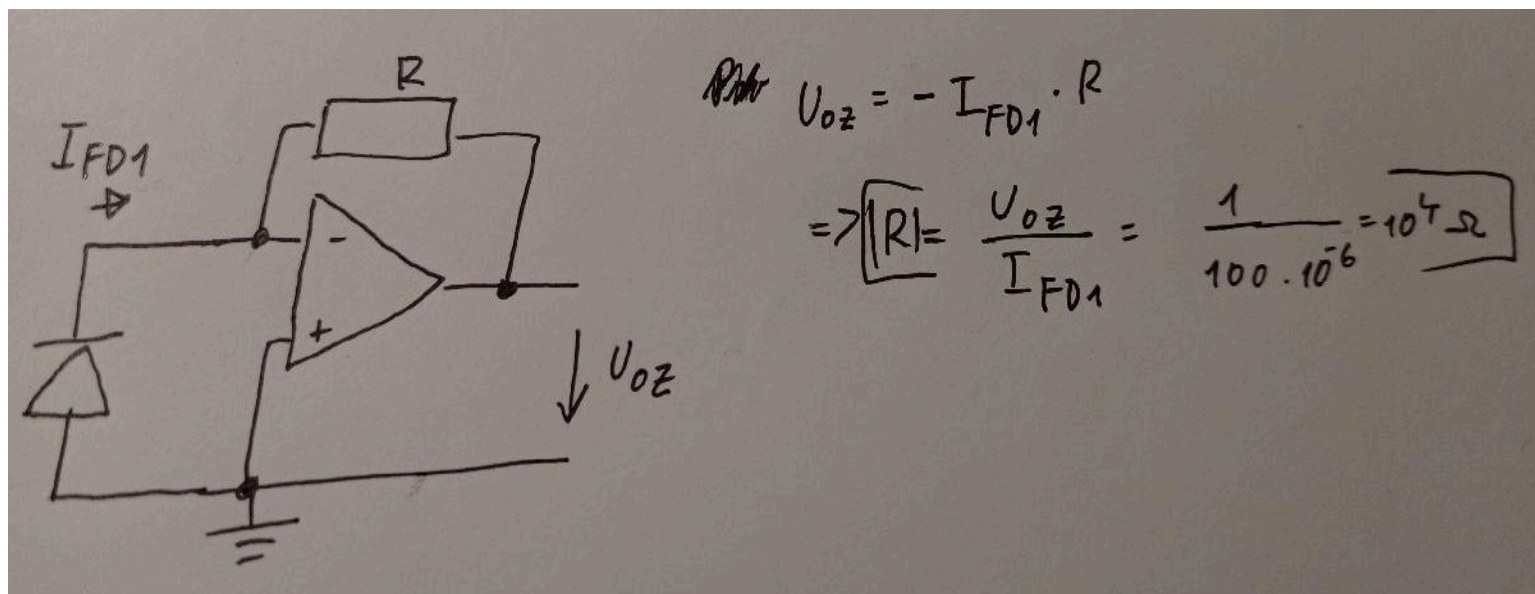 R
I_FD1
-
+
U_OZ
U_OZ = - I_FD1 · R
=> |R| = U_OZ / I_FD1 = 1 / 100 · 10^-6 = 10^4 Ω